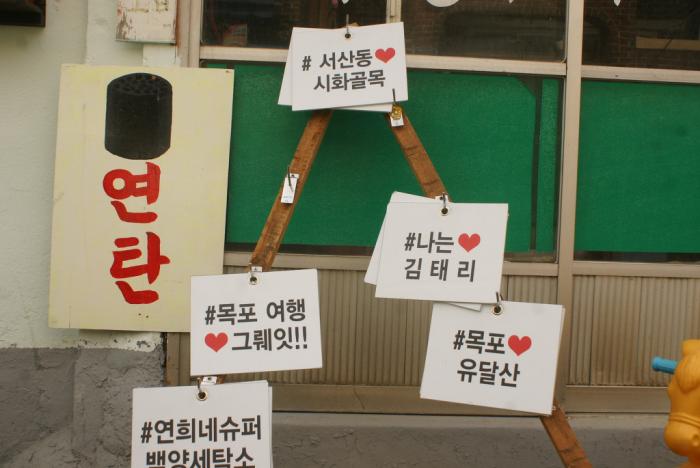 연탄
# 서산동❤
시화골목
#나는❤
김 태 리
#목포 여행
❤그뤠잇!!
#목포❤
유달산
#연희네슈퍼
백양세탁소